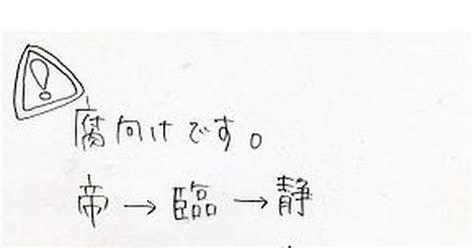 腐向けです。
帝→臨→静